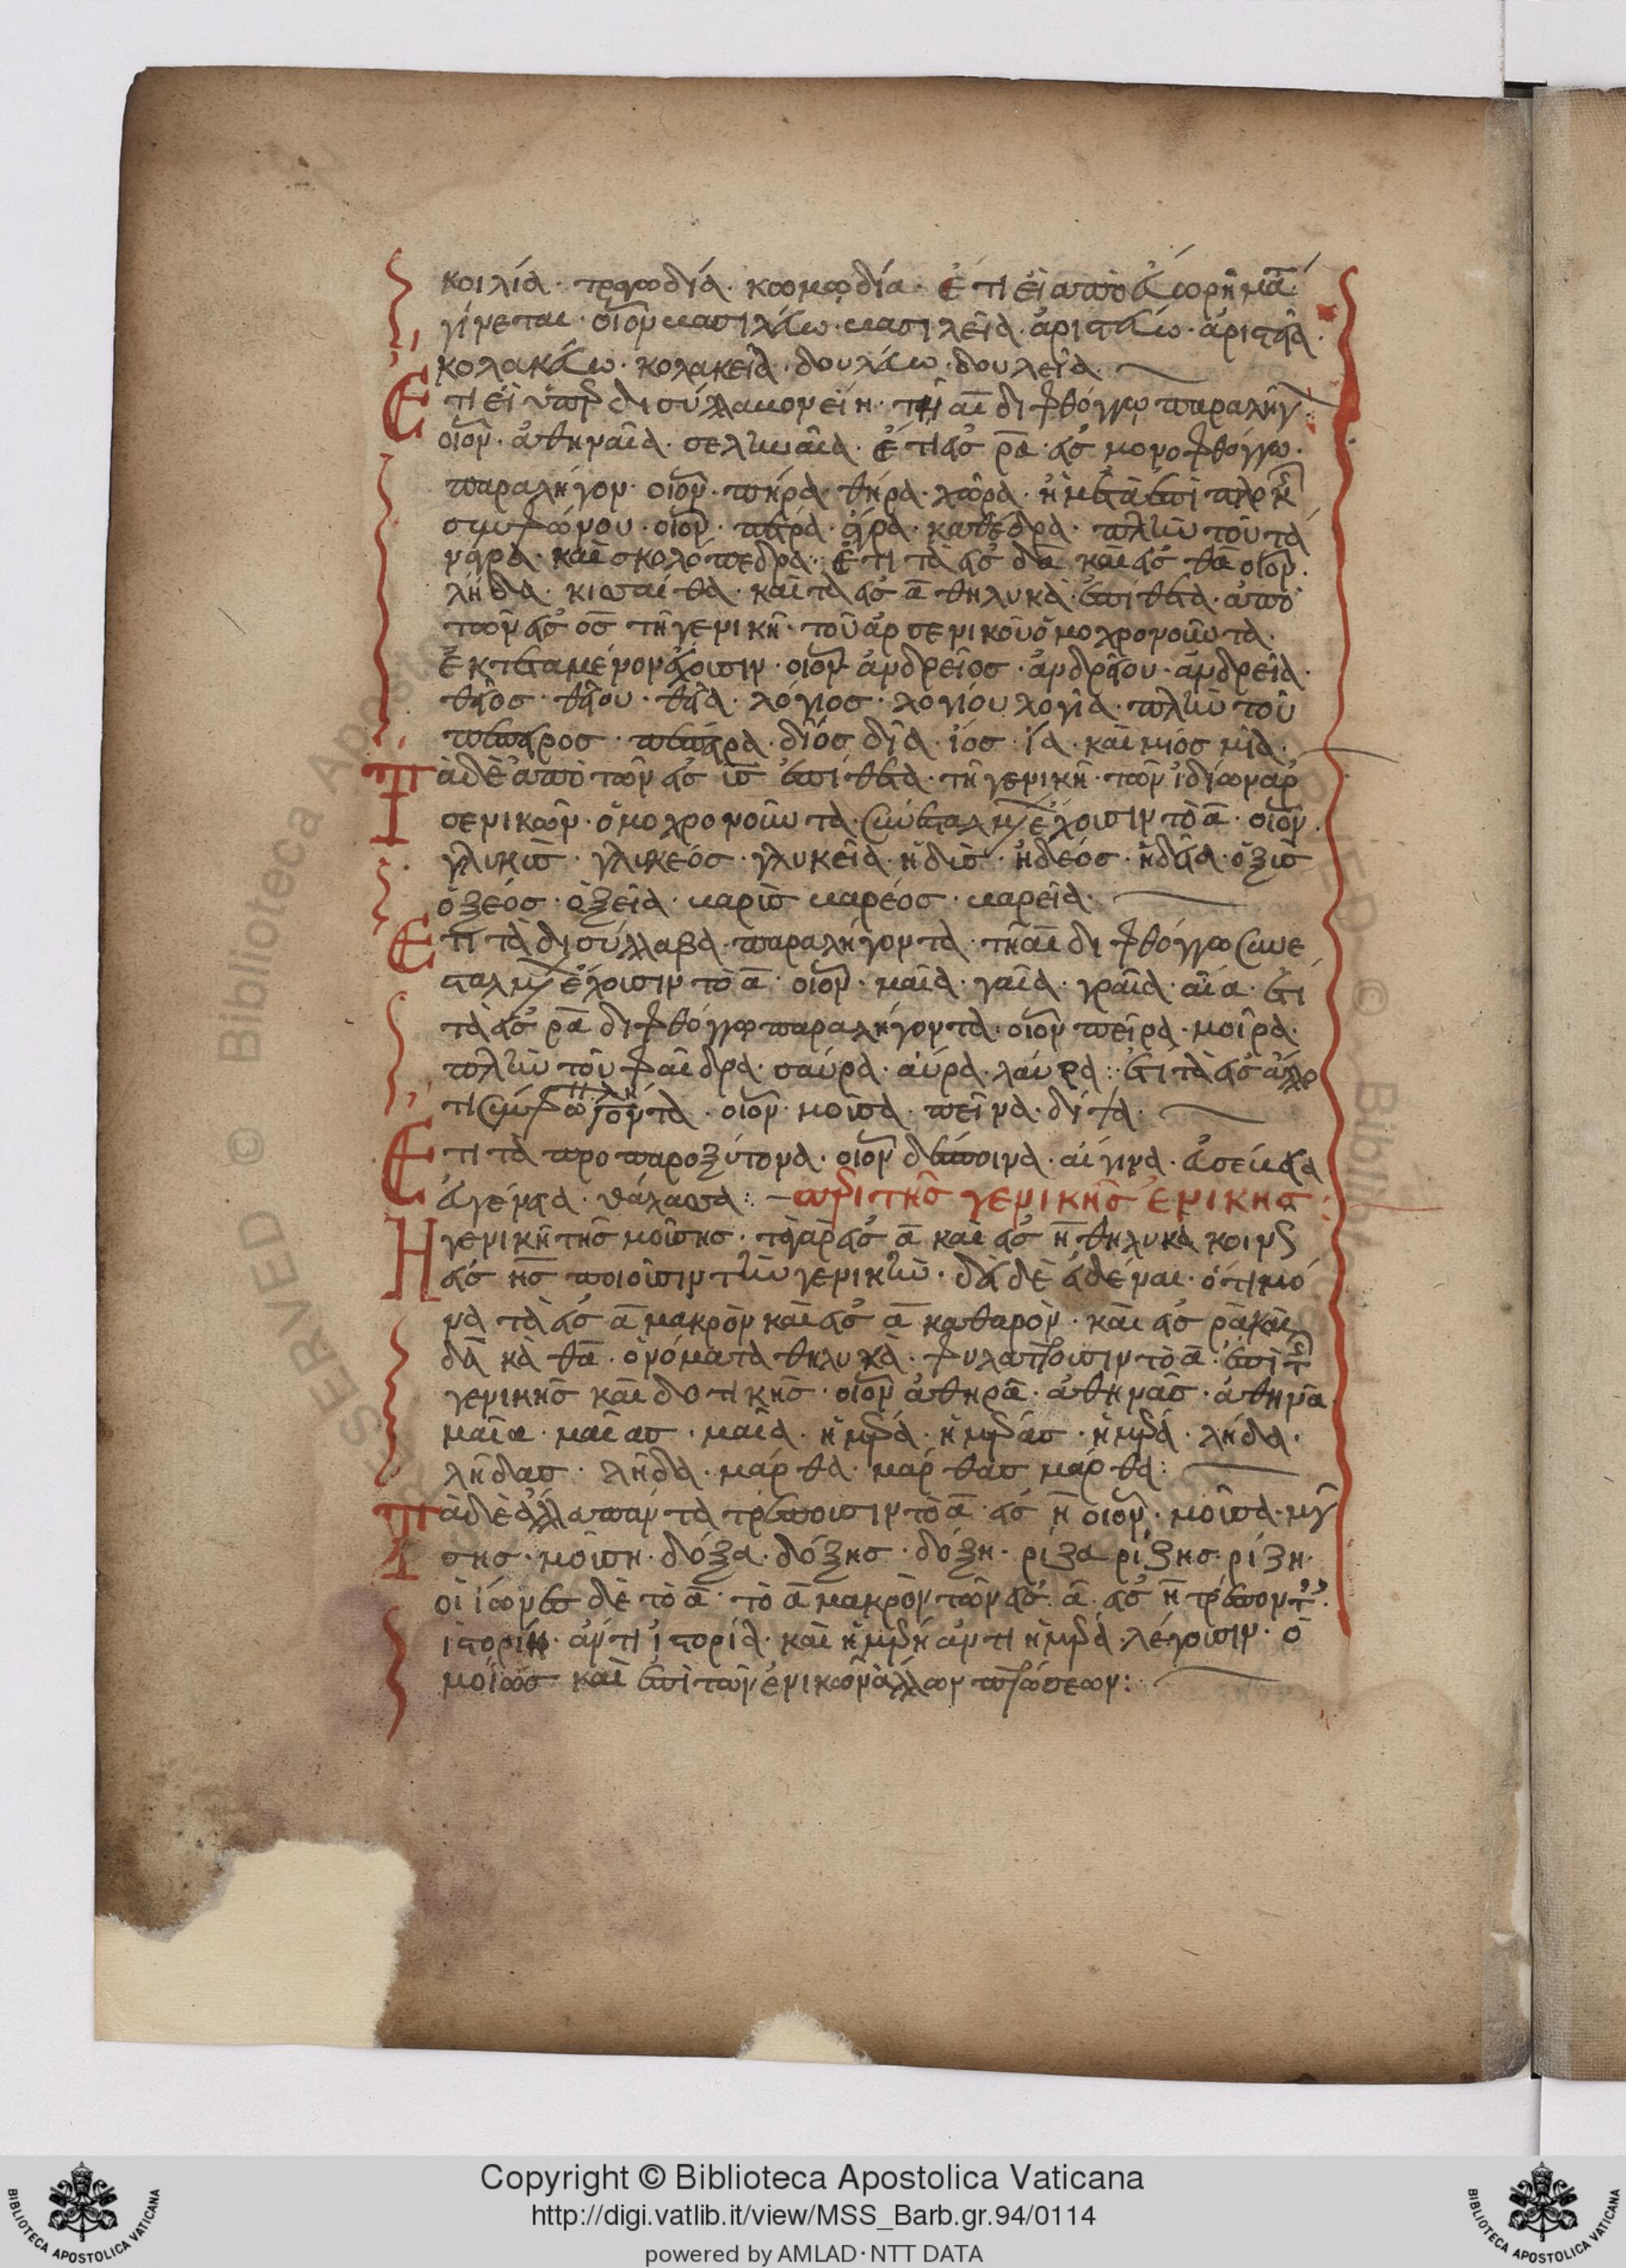 κοιλία· τραγωδία· κωμωδία· Ἔτι εἰ ἀπὸ εύω ρήμα
γίνεται· οἷον βασιλεύω· βασιλεία· ἀριστεύω· ἀριστεία·
κολακεύω· κολακεία· δουλεύω· δουλεία·
Ἔτι εἰ ὑπὲρ δισύλλαβον εἴη· τῆ αι διφθόγγω παραλήγ
οἷον· ἀθηναία· σεληναία· ἔτι εἰς ρα εἰς μονοφθόγγω·
παραλήγον· οἷον· πήρα· θήρα· χώρα· ἢ μετὰ ἐπιπλοκῆ
συμφώνου· οἷον· πέτρα· ἄγρα· καθέδρα· πλὴν τοῦ τά
ναγρα· καὶ σκολόπεδρα· Ἔτι τὰ εἰς δα καὶ εἰς θα οἷον·
λήδα· κισσαίθα· καὶ τὰ εἰς α θηλυκὰ ἐπίθετα· ἀπὸ
τῶν εἰς ος τῆ γενικῆ· τοῦ ἀρσενικοῦ ὁμοχρονοῦντα·
Ἐκτεταμένον ἔχουσιν· οἷον ἀνδρεῖος· ἀνδρείου· ἀνδρεία·
θεῖος· θείου· θεία· λόγιος· λογίου λογία· πλὴν τοῦ
πέπειρος· πέπειρα· δῖος δῖα· ἴος· ἴα· καὶ μιός μία·
Τὰ δὲ ἀπὸ τῶν εἰς υς ἐπίθετα· τῆ γενικῆ· τῶν ἰδίων ἀρ
σενικῶν· ὁμοχρονοῦντα· συνεσταλμ ἔχουσιν τὸ α· οἷον·
γλυκὺς· γλυκέος· γλυκεῖα· ἡδὺς· ἡδέος· ἡδεῖα· ὀξὺς
ὀξέος· ὀξεῖα· βαρὺς βαρέος· βαρεῖα·
Ἔτι τὰ δισύλλαβα· παραλήγοντα· τῆ αι διφθόγγω συνε
σταλμ ἔχουσιν τὸ α· οἷον· μαῖα· γαῖα· γραῖα· αἶα· ἔτι
τὰ εἰς ρα διφθόγγω παραλήγοντα· οἷον πεῖρα· μοῖρα·
πλὴν τοῦ φαίδρα· σαύρα· αὔρα· λαύρα· Ἔτι τὰ εἰς ἄλλο
τι σύμφω λήγοντα· οἷον· μοῦσα· πεῖνα· δίψα·
Ἔτι τὰ προπαροξύτονα· οἷον δέσποινα· αἴγινα· εὐσέβεια
εὐγένεια· θάλασσα: – περὶ τῆς γενικῆς ἑνικῆς:
Ἡ γενικὴ τῆς μούσης· τὰ γὰρ εἰς α καὶ εἰς η θηλυκὰ κοινῶς
εἰς ης ποιοῦσιν τὴν γενικὴν· δεῖ δὲ εἰδέναι· ὅτι μό
να τὰ εἰς α μακρὸν καὶ εἰς α καθαρὸν· καὶ εἰς ρα καὶ
δα κὰ θα· ὀνόματα θηλυκὰ· φυλάττουσιν τὸ α· ἐπὶ τ
γενικῆς καὶ δοτικῆς· οἷον ἀθηνᾶ· ἀθηνᾶς· ἀθηνᾶ
μαῖα· μαίας· μαία· ἡμέρα· ἡμέρας· ἡμέρα· λήδα·
λήδας· λήδα· μάρθα· μάρθας μάρθα:
Τὰ δὲ ἄλλα πάντα τρέπουσιν τὸ α· εἰς η οἷον· μοῦσα· μού
σης· μούση· δόξα· δόξης· δόξη· ρίζα ρίζης· ρίζη·
οἱ ἴωνες δὲ τὸ α· τὸ α μακρὸν τῶν εἰς α· εἰς η τρέποντ
ἱστορίη· ἀντὶ ἱστορία· καὶ ἡμέρη ἀντὶ ἡμέρα λέγουσιν· ὁ
μοίως καὶ ἐπὶ τῶν ἑνικῶν ἄλλων πτώσεων:
Copyright © Biblioteca Apostolica Vaticana
http://digi.vatlib.it/view/MSS_Barb.gr.94/0114
powered by AMLAD·NTT DATA
BIBLIOTECA APOSTOLICA VATICANA
BIBLIOTECA APOSTOLICA VATICANA